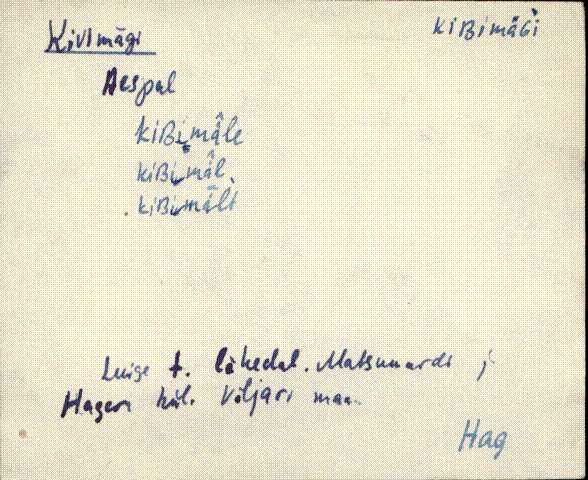 Kivimägi
kiBimäGi
Aespal
kiBimä̂le
kiBimä̂l
kiBimä̂lt
Luige t. lähedal. Matsumardi j
Hageri kül. Väljari maa.
Hag